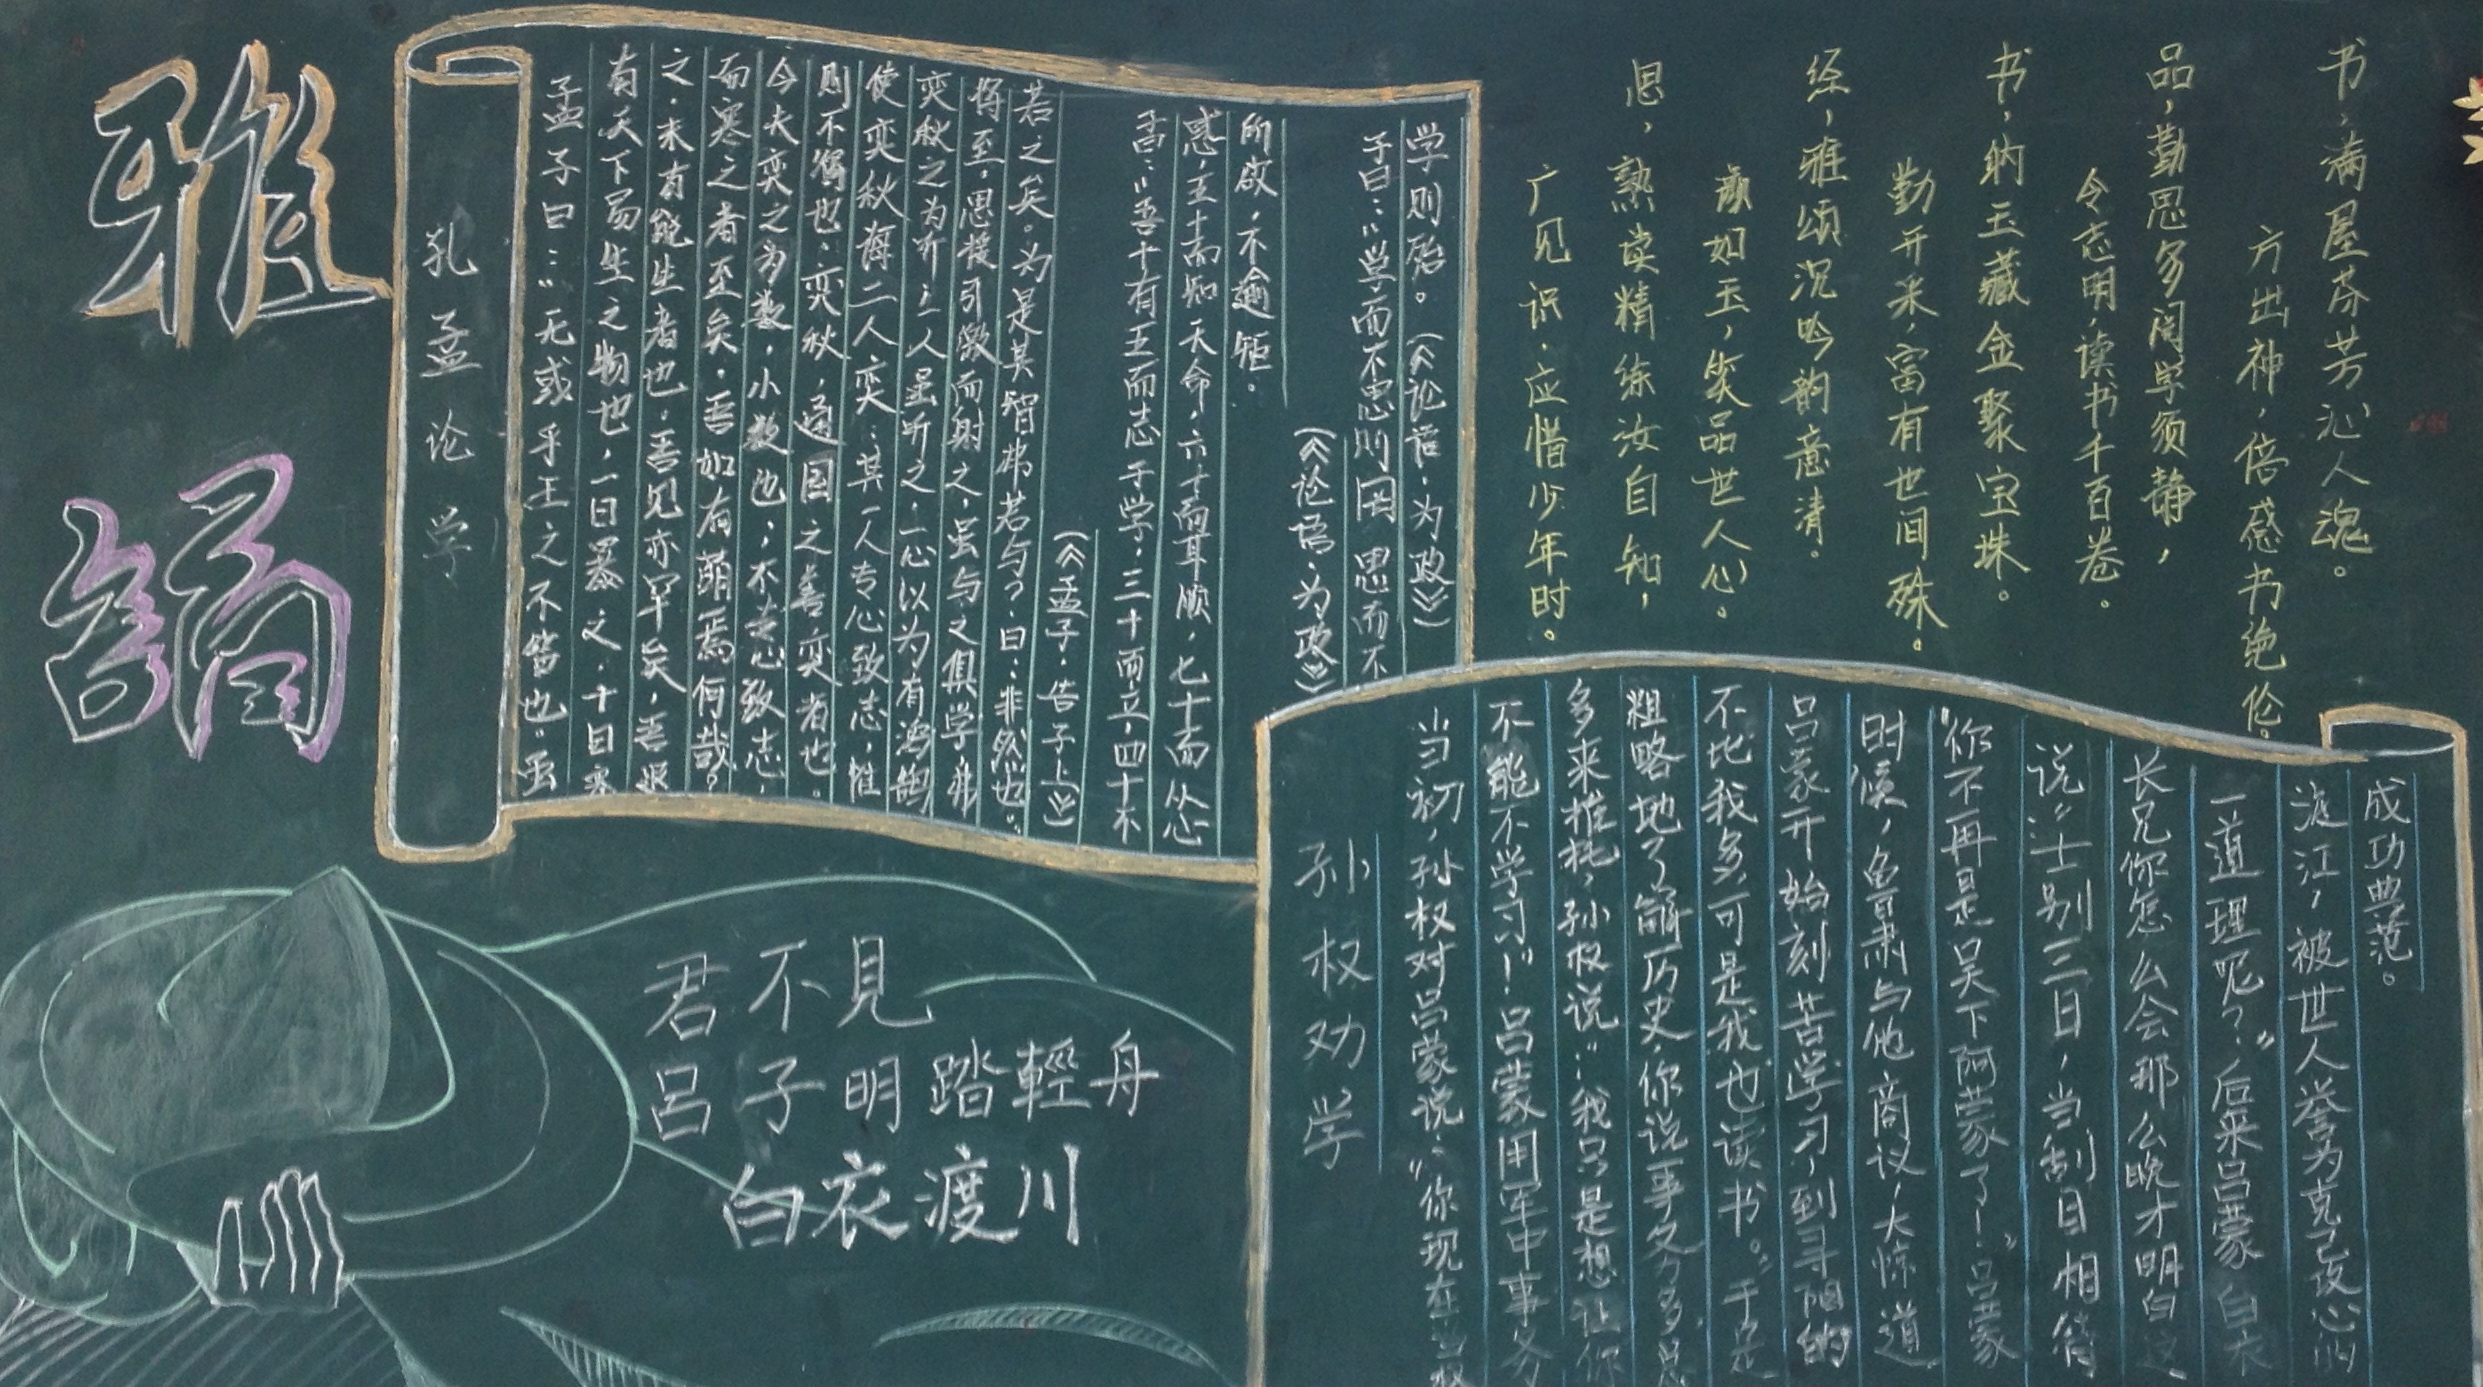 雅誦
孔孟论学
孟子曰：“无或乎王之不智也。虽
有天下易生之物也，一日暴之，十日寒
之，未有能生者也。吾见亦罕矣，吾退
而寒之者至矣，吾如有萌焉何哉？
今夫弈之为数，小数也；不专心致志，
则不得也。弈秋，通国之善弈者也。
使弈秋诲二人弈：其一人专心致志，惟
弈秋之为听；一人虽听之，一心以为有鸿鹄
将至，思援弓缴而射之，虽与之俱学，弗
若之矣。为是其智弗若与？曰：非然也。
（《孟子·告子上》）
子曰：“吾十有五而志于学，三十而立，四十不
惑，五十而知天命，六十而耳顺，七十而从心
所欲，不逾矩。
（《论语·为政》）
子曰：“学而不思则罔，思而不
学则殆。（《论语·为政》）
书，满屋芬芳沁人魂。
方出神，倍感书绝伦。
品，勤思多阅学须静，
令志明，读书千百卷。
书，纳玉藏金聚宝珠。
勤开采，富有世间殊。
经，雅颂沉吟韵意清。
颜如玉，笑品世人心。
思，熟读精练汝自知，
广见识，应惜少年时。
君不見
呂子明踏輕舟
白衣渡川
孙权劝学
当初，孙权对吕蒙说：“你现在当权
不能不学习！”吕蒙用军中事务
多来推托，孙权说：“我只是想让你
粗略地了解历史，你说事务多，总
不比我多，可是我也读书。”于是
吕蒙开始刻苦学习，到寻阳的
时候，鲁肃与他商议，大惊道
“你不再是吴下阿蒙了！”吕蒙
说“士别三日，当刮目相待
长兄你怎么会那么晚才明白这
一道理呢？”后来吕蒙白衣
渡江，被世人誉为克己攻心的
成功典范。